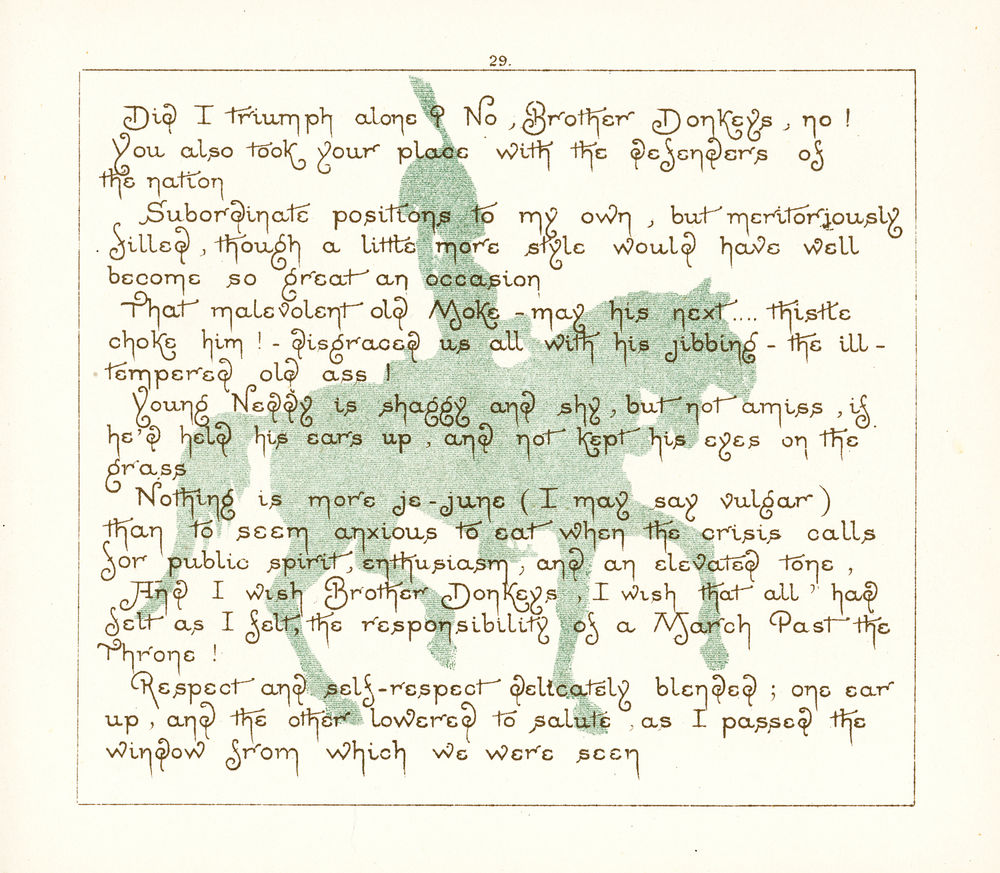 29.
Did I triumph alone? No, Brother Donkeys, no!
You also took your place with the defenders of
the nation
Subordinate positions to my own, but meritoriously
filled, though a little more style would have well
become so great an occasion
That malevolent old Moke - may his next.... thistle
choke him! - disgraced us all with his jibbing - the ill-
tempered old ass!
Young Neddy is shaggy and shy, but not amiss, if
he'd held his ears up, and not kept his eyes on the
grass
Nothing is more je-june (I may say vulgar)
than to seem anxious to eat when the crisis calls
for public spirit, enthusiasm, and an elevated tone,
And I wish Brother Donkeys, I wish that all' had
felt as I felt, the responsibility of a March Past the
Throne!
Respect and self-respect delicately blended; one ear
up, and the other lowered to salute, as I passed the
window from which we were seen